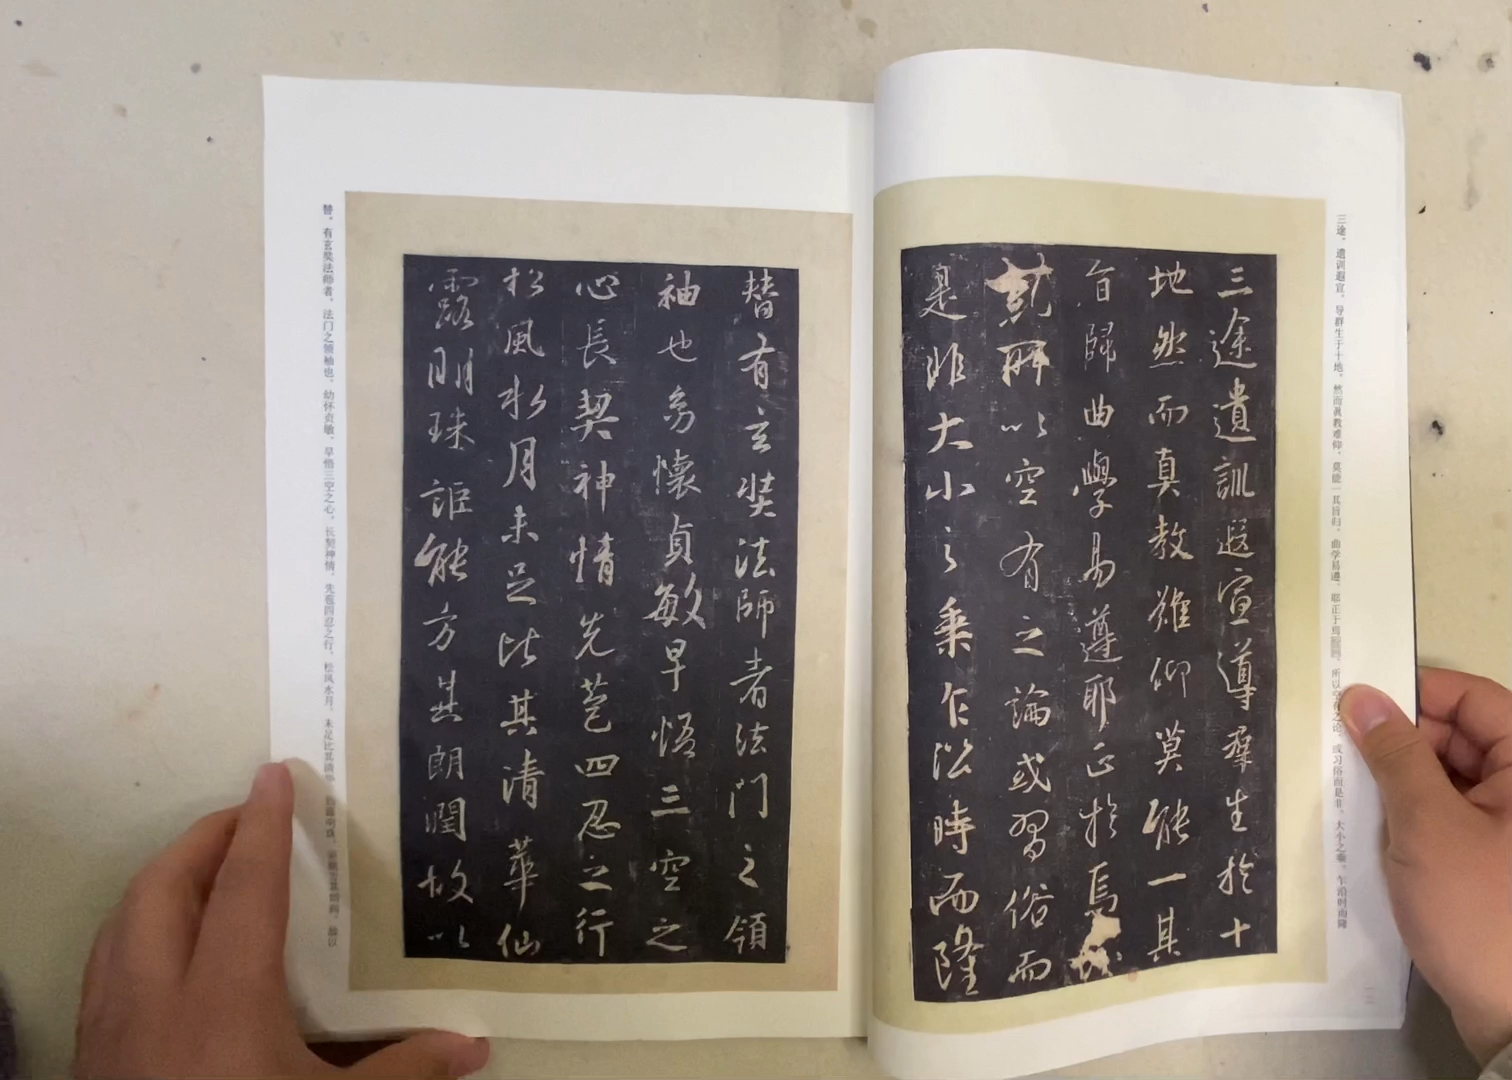 三途。遗训遐宣，导群生于十地。然而真教难仰，莫能一其旨归，曲学易遵，耶正于焉，所以空有之论，或习俗而是非，大小之乘，乍沿时而隆
三途遺訓遐宣導羣生於十
地然而真教難仰莫能一其
旨歸曲學易遵耶正於焉
所以空有之論或習俗而
是非大小之乘乍沿時而隆
替有玄奘法師者法門之領
袖也幼懷貞敏早悟三空之
心長契神情先苞四忍之行
松風水月未足比其清華仙
露明珠詎能方其朗潤故以
替。有玄奘法师者，法门之领袖也。幼怀贞敏，早悟三空之心，长契神情，先苞四忍之行。松风水月，未足比其清华，仙露明珠，讵能方其朗润。故以